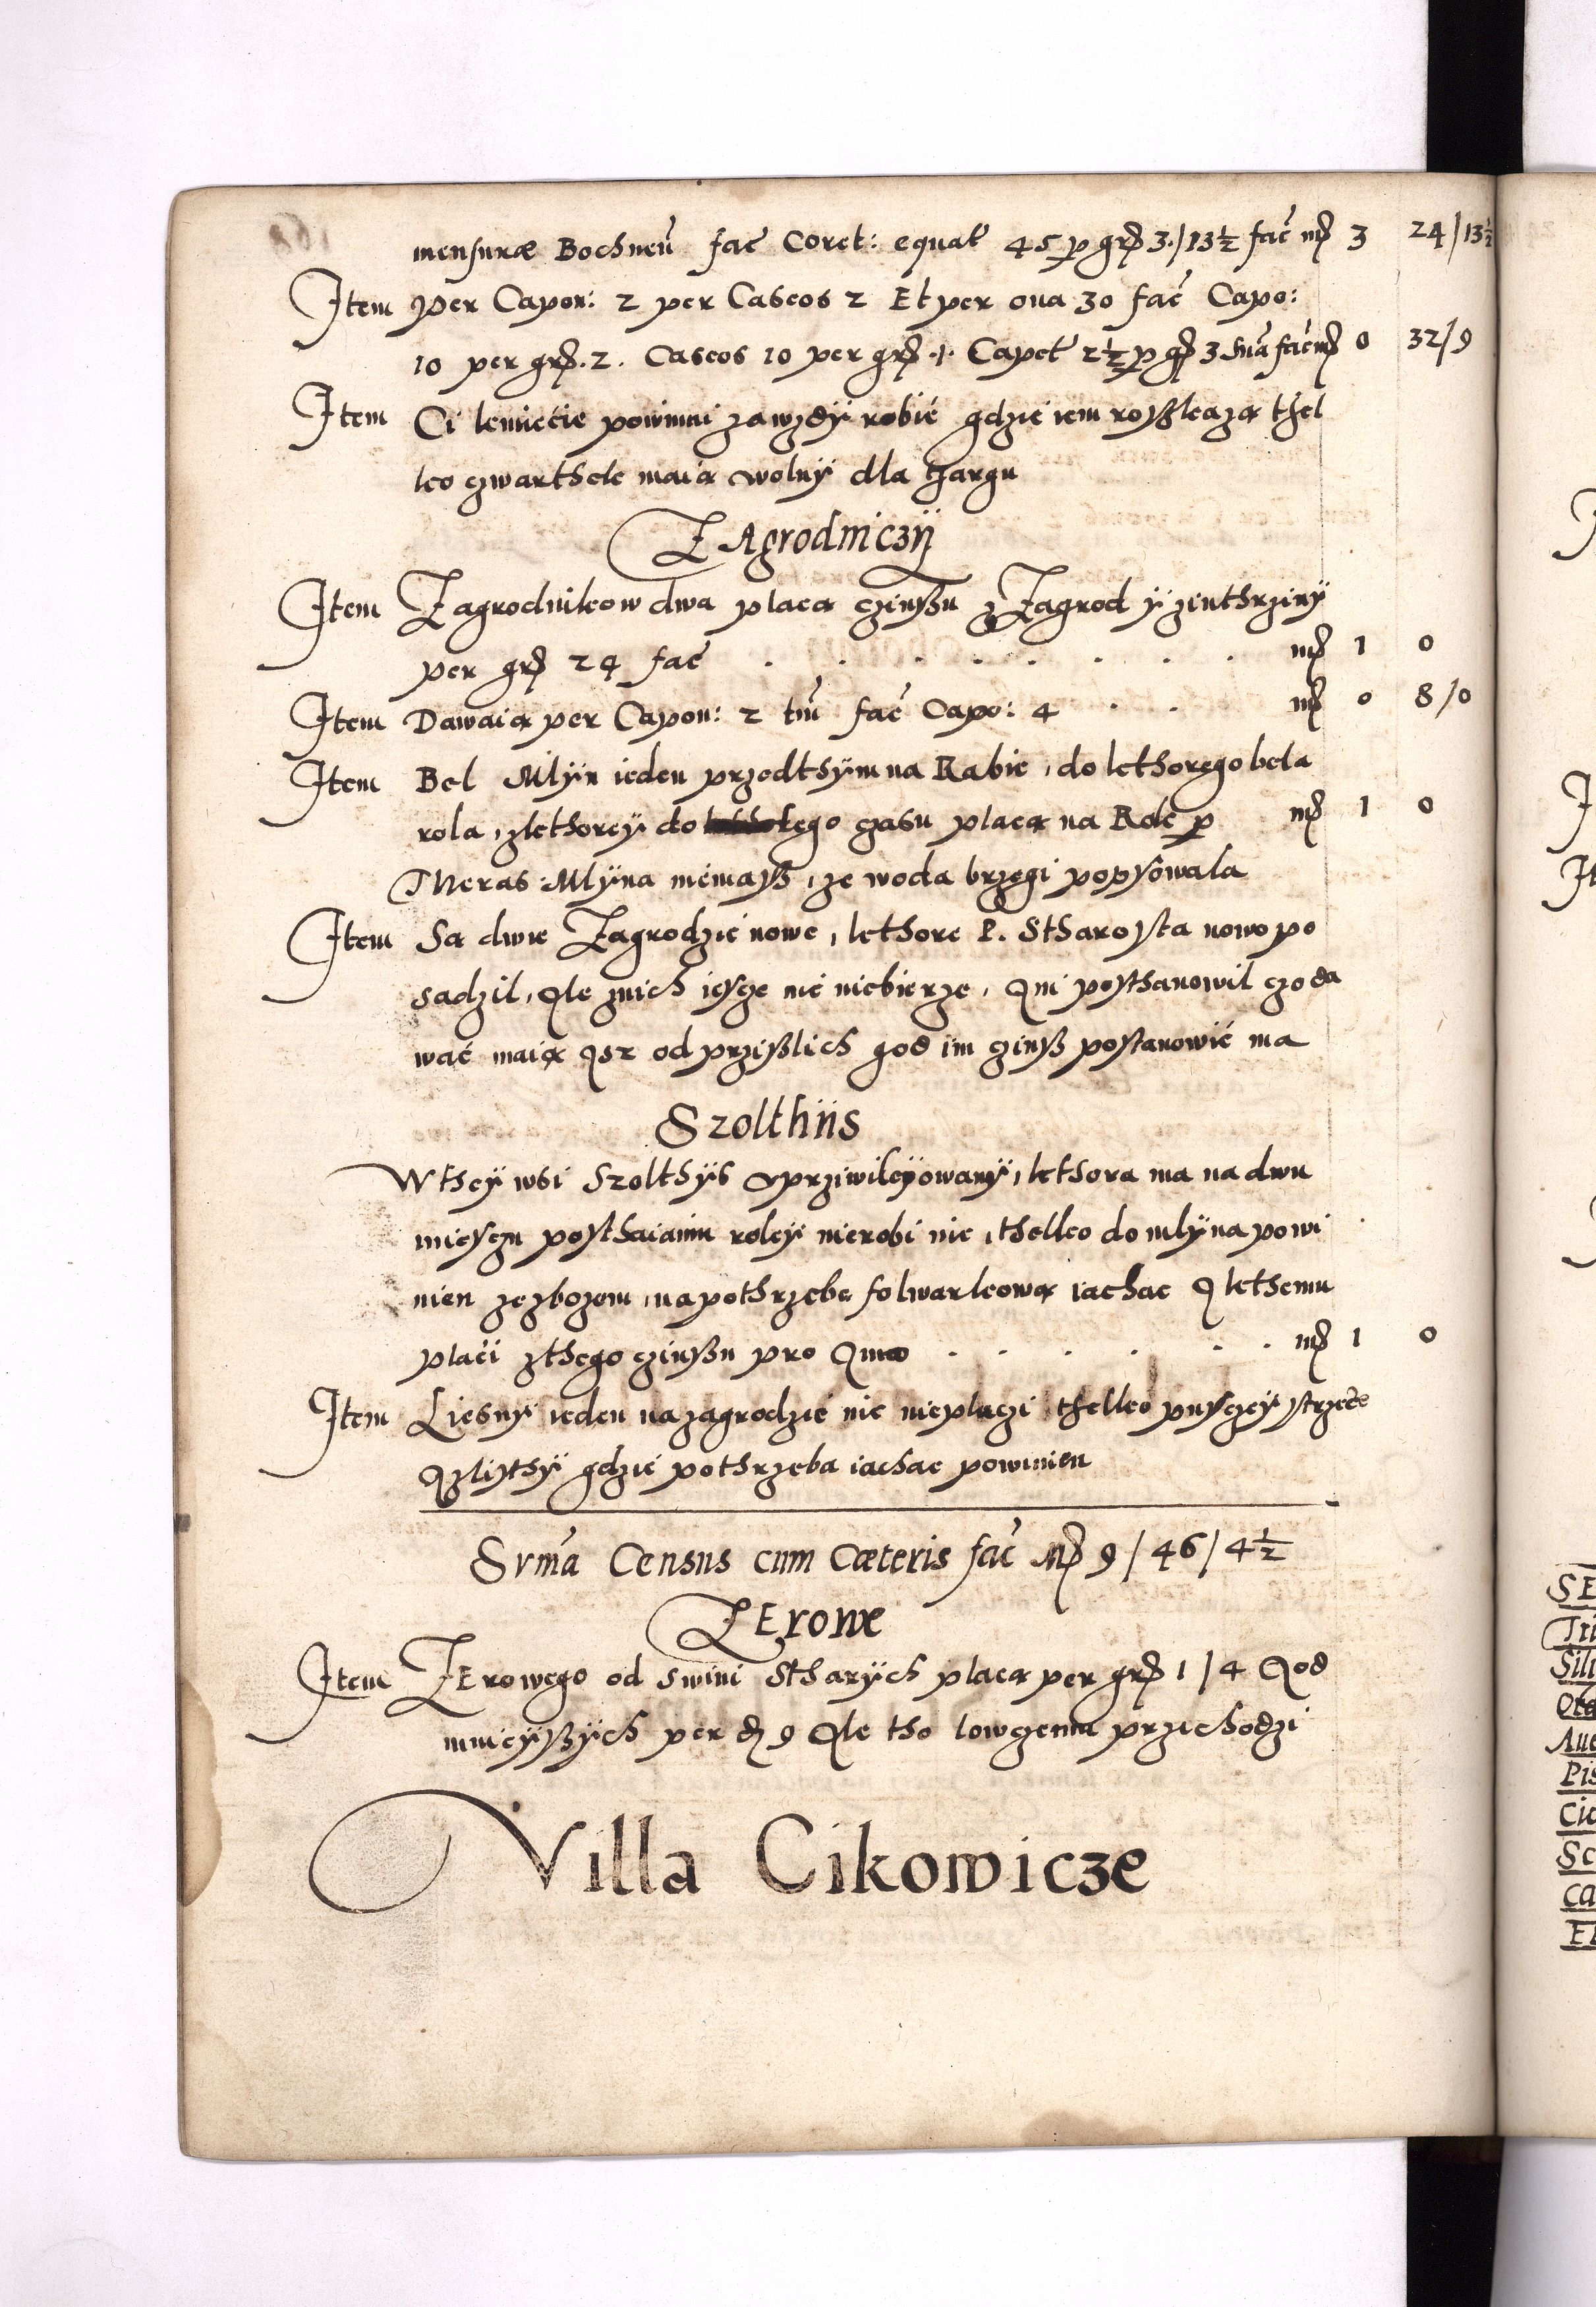 mensuræ Bochneñ fac̃ Coret: equat̃ 45 p̱ grß 3./13½ fac̃ mß 3 24/13½
Item per Capon: 2 per Caseos 2 Et per oua 30 fac̃ Capo:
10 per grß. 2. Caseos 10 per grß .1. Capet̃ 2½ p̱ gß 3 Suã fac̃ mß 0 32/9
Item Ci kmiécie powinni zawzdÿ robić gdzie iem roskażą thel
ko czwarthek maią wolnÿ dla tzargu
ZAgrodniczÿ
Item Zagrodnikow dwa placą czinßu z Zagrod ÿ zinthrzinÿ
per grß 24 fac̃ . . . . . . . . mß 1 0
Item Dawaią per Capon: 2 tm̃ fac̃ Capo: 4 . . mß 0 8/0
Item Bel Mlÿn ieden przedthÿm na Rabie, do kthorego bela
rola, z kthoreÿ do tego czasu placą na Rok p̱ mß 1 0
Theras Mlÿna niemaß, ze woda brzegi popsowala
Item Są dwie Zagrodzie nowe, kthore P.Stharosta nowo po
sadzil, Ale znich iescze nic niebierze, Ani posthanowil czo da
wać maią Asz od przißlich god im czinß postanowić ma
Szolthÿs
W theÿ wsi Szolthÿs vprziwileÿowanÿ, kthora ma na dwu
miesczu posthaianiu roleÿ nierobi nic, thelko do mlÿna powi
nien ze zbozem, na pothrzebe folwarkową iachac A kthemu
placi z thego czinßu pro Anno . . . . . . mß 1 0
Item Liesnÿ ieden na zagrodzie nic nieplaczi thelko pusczeÿ strzeże
A z listhÿ gdzie pothrzeba iachac powinien
Sum̃a Census cum Cæteris fac̃ Mß 9 / 46 / 4½
ZErowe
Item ZErowego od swini Stharÿch placą per grß 1 / 4 A od
mnieÿßÿch per ₰ 9 Ale tho lowczemu przichodzi
Villa Cikowicze